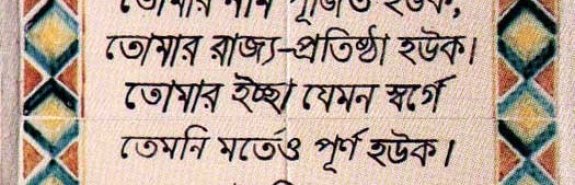 তোমার নাম পূজিত হউক,
তোমার রাজ্য-প্রতিষ্ঠা হউক।
তোমার ইচ্ছা যেমন স্বর্গে
তেমনি মর্তেও পূর্ণ হউক।